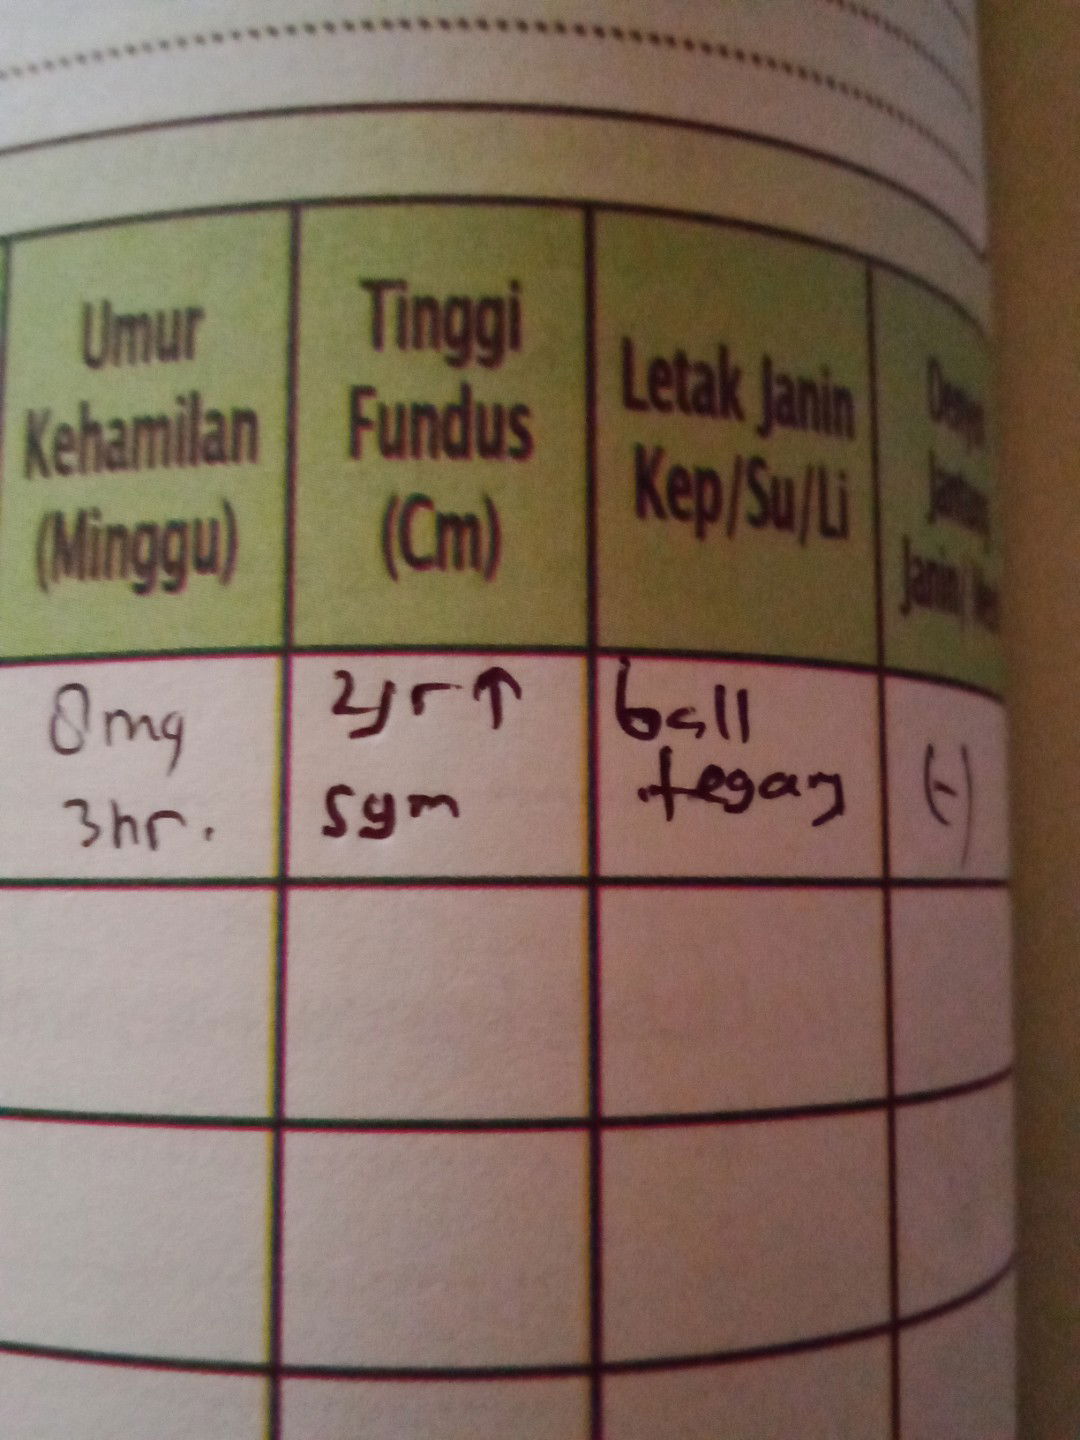 Umur
Kehamilan
(Minggu)
Tinggi
Fundus
(Cm)
Letak Janin
Kep/Su/Li
Jantung
Janin/
8 mg
3 hr.
2jr ↑
sym
ball
tegang
(-)